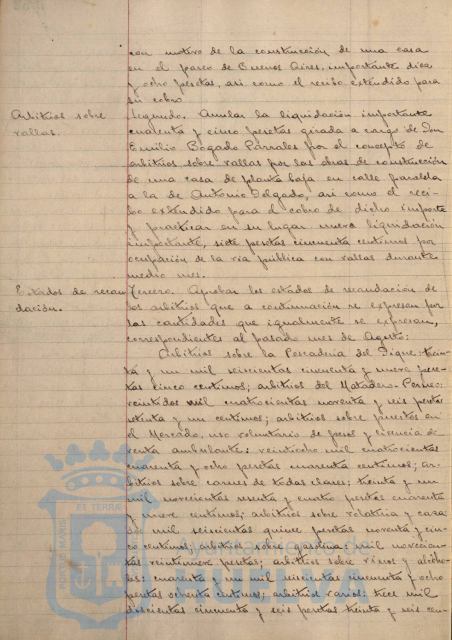 con motivo de la construcción de una casa
en el paseo de Buenos Aires, importante diez
y ocho pesetas, asi como el recibo extendido para
su cobro
Arbitrios sobre vallas.
Segundo. Anular la liquidación importante
cuarenta y cinco pesetas girada a cargo de Don
Emilio Bogado Parrales por el concepto de
arbitrios sobre vallas por las obras de construcción
de una casa de planta baja en calle paralela
a la de Antonio Delgado, asi como el reci-
bo extendido para el cobro de dicho importe
y practicar en su lugar nueva liquidación
importante, siete pesetas cincuenta centimos por
ocupación de la via publica con vallas durante
medio mes.
Estados de recau
dación.
Tercero. Aprobar los estados de recaudación de
los arbitrios que a continuación se expresan por
las cantidades que igualmente se expresan,
correspondientes al pasado mes de Agosto:
Arbitrios sobre la Pescaderia del Dique: trein-
ta y un mil seiscientas cincuenta y nueve pese-
tas cinco centimos; arbitrios del Matadero-Perneo:
veintidos mil cuatrocientas noventa y seis pesetas
setenta y un centimos; arbitrios sobre puestos en
el Mercado, uso voluntario de pesos y licencia de
venta ambulante: veintiocho mil cuatrocientas
cuarenta y ocho pesetas cuarenta centimos; ar-
bitrios sobre carnes de todas clases: treinta y un
mil novecientas y cuatro pesetas cuarenta
y nueve centimos; arbitrios sobre volateria y caza
mil seiscientas quince pesetas noventa y cin-
co centimos; arbitrios sobre gasolina: mil novecien-
tas veintinueve pesetas; arbitrios sobre vinos y alcoho-
les: cuarenta y un mil seiscientas cincuenta y ocho
pesetas ochenta centimos; arbitrios varios: trece mil
doscientas cincuenta y seis pesetas treinta y seis cen-
PORTUS MARIS
ET TERRAE
Ayuntamiento de
HUELVA